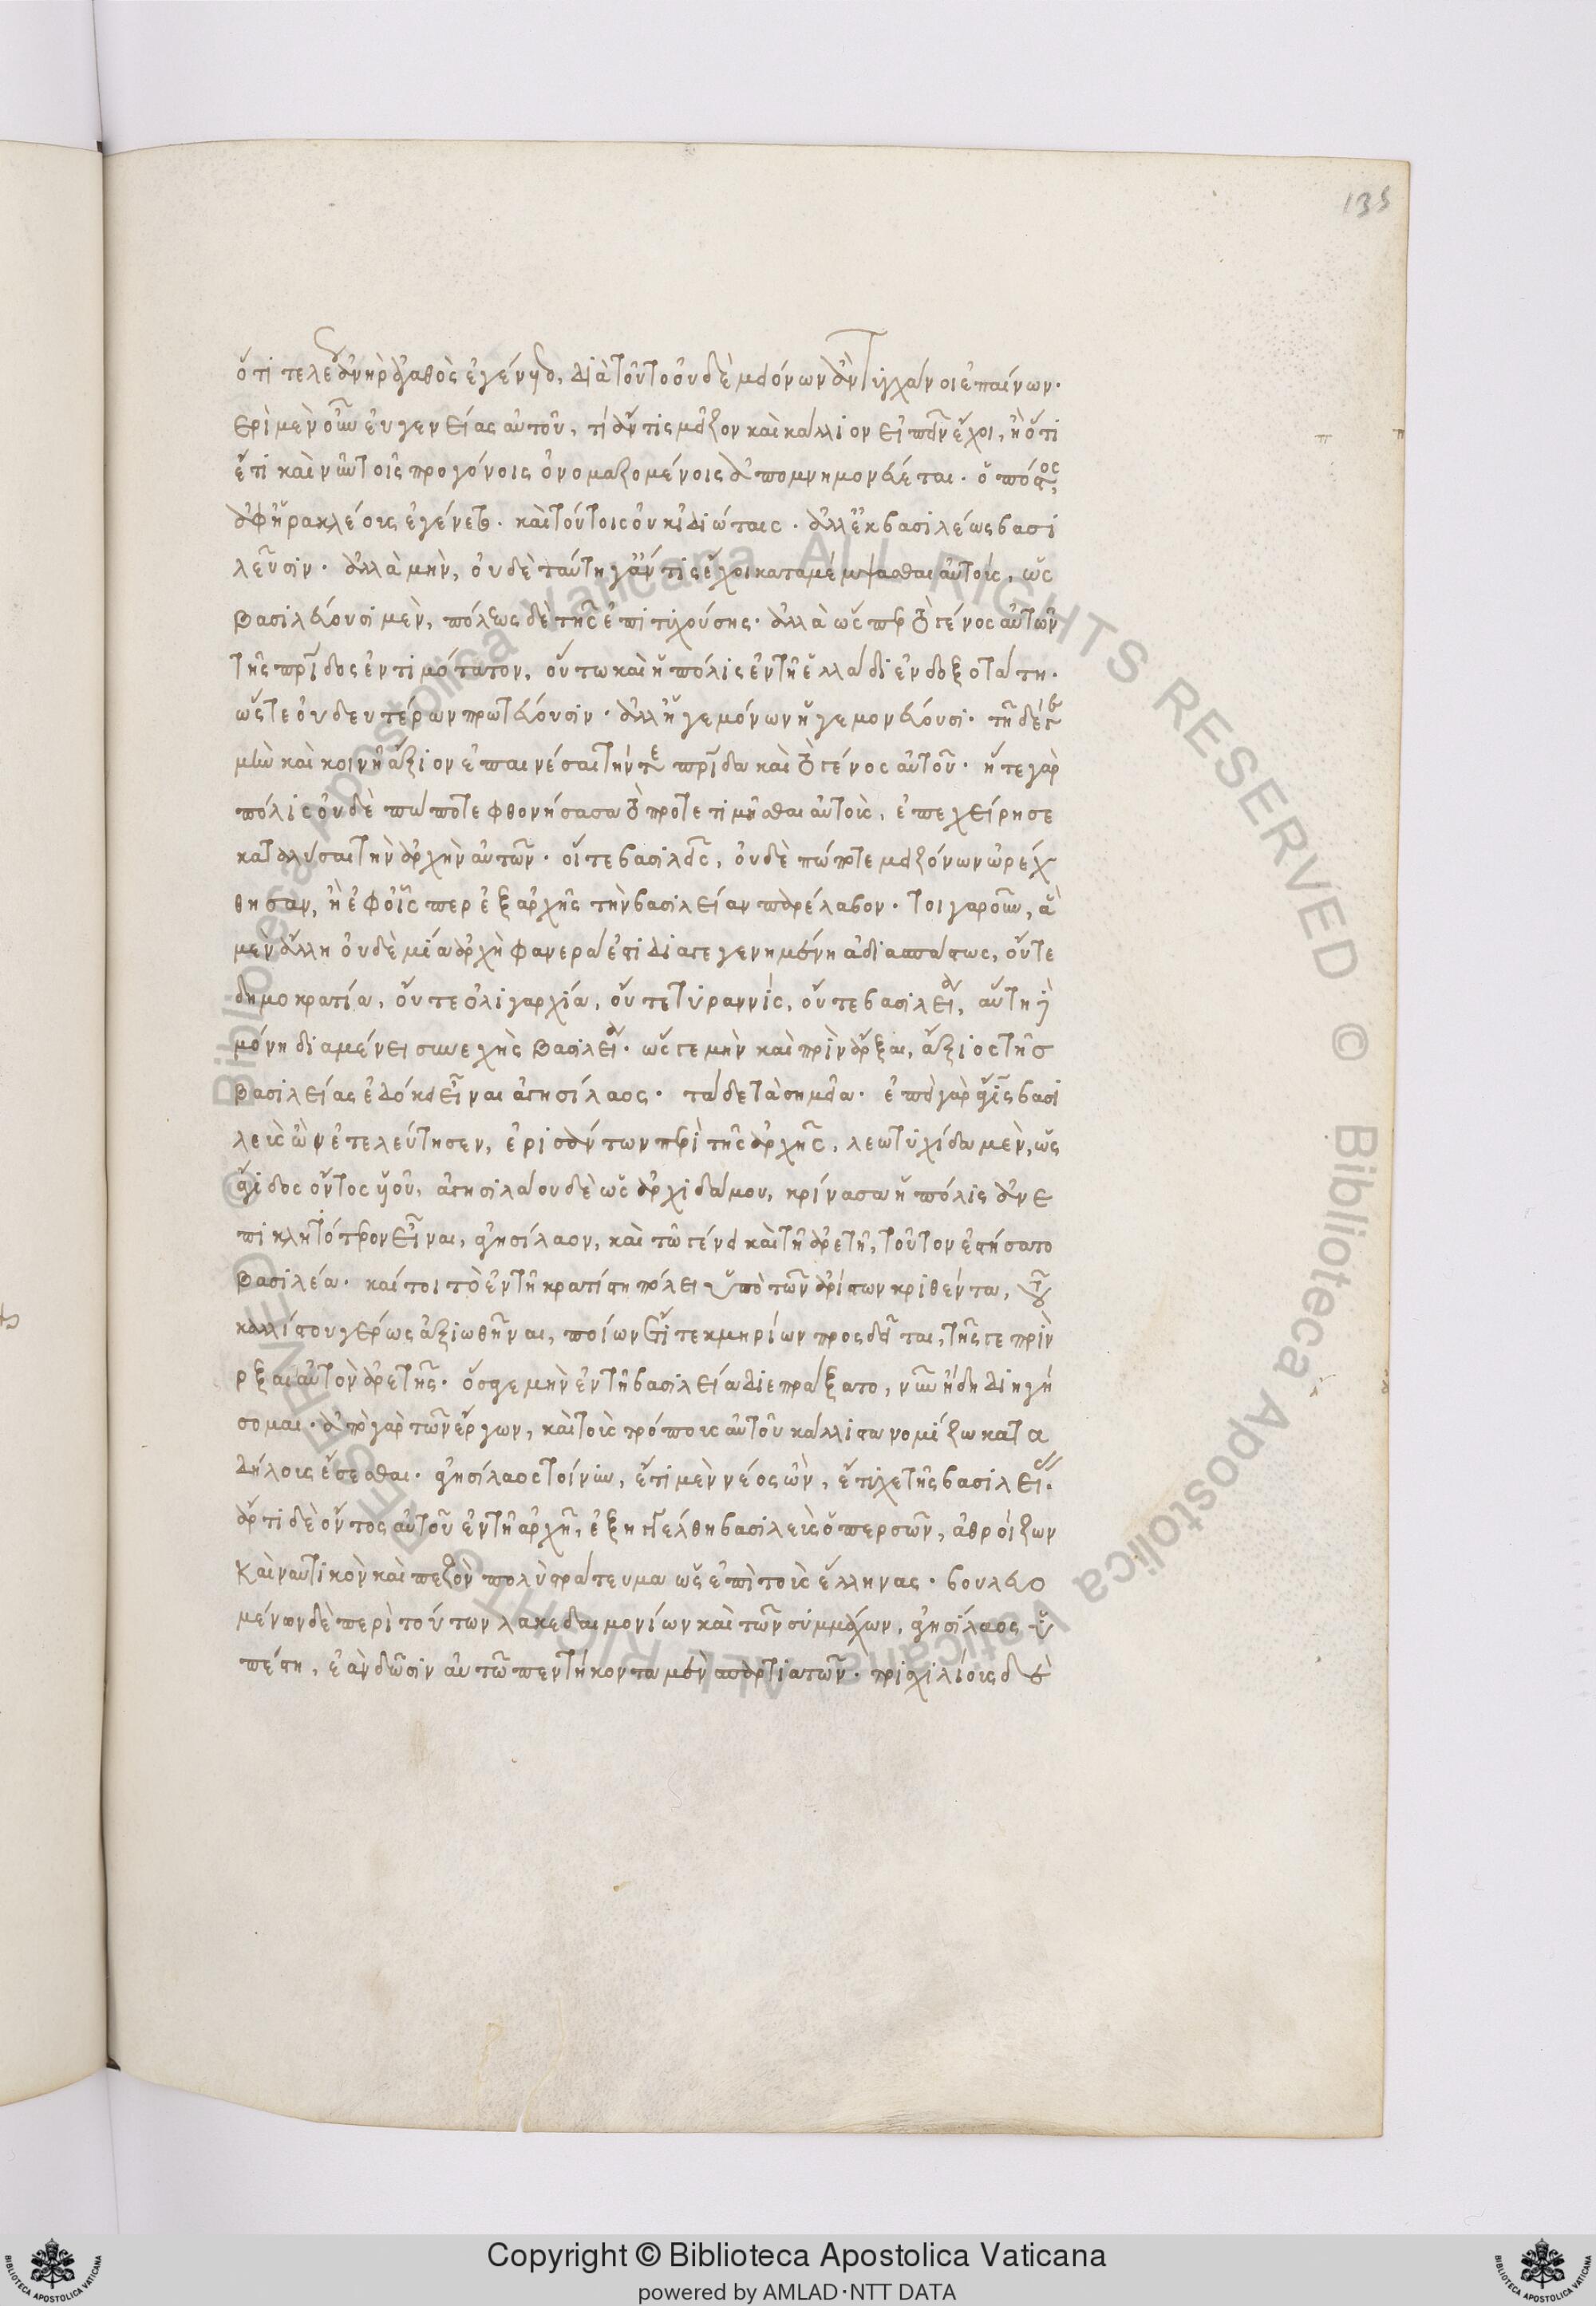 135
ὅτι τελέως ἀνὴρ ἀγαθὸς ἐγένετο, διὰ τοῦτο οὐδὲ μειόνων ἂν τυγχάνοι ἐπαίνων.
ερὶ μὲν οὖν εὐγενείας αὐτοῦ, τί ἄν τις μεῖζον καὶ κάλλιον εἰπεῖν ἔχοι, ἢ ὅτι
ἔτι καὶ νῦν τοῖς προγόνοις ὀνομαζομένοις ἀπομνημονεύεται. ὁπόστος
ἀφ' ἡρακλέους ἐγένετο. καὶ τούτοις οὐκ ἰδιώταις. ἀλλ' ἐκ βασιλέως βασι
λεῦσιν. ἀλλὰ μὴν, οὐδὲ ταύτῃ γ' ἄν τις ἔχοι καταμέμψασθαι αὐτοὺς, ὡς
βασιλεύουσι μὲν, πόλεως δὲ τῆς ἐπιτυχούσης. ἀλλὰ ὥσπερ τὸ γένος αὐτῶν
τῆς πατρίδος ἐντιμότατον, οὕτω καὶ ἡ πόλις ἐν τῇ ἑλλάδι ἐνδοξοτάτη.
ὥστε οὐ δευτέρων πρωτεύουσιν. ἀλλ' ἡγεμόνων ἡγεμονεύουσι. τῇδέ γε
μὴν καὶ κοινῇ ἄξιον ἐπαινέσαι τήν τε πατρίδα καὶ τὸ γένος αὐτοῦ. ἥ τε γὰρ
πόλις οὐδὲ πώποτε φθονήσασα τὸ προτετιμῆσθαι αὐτοὺς, ἐπεχείρησε
καταλῦσαι τὴν ἀρχὴν αὐτῶν. οἵ τε βασιλεῖς, οὐδὲ πώποτε μειζόνων ὠρέχ
θησαν, ἢ ἐφ' οἷς περ ἐξ ἀρχῆς τὴν βασιλείαν παρέλαβον. τοιγαροῦν, ἄ
μὲν ἄλλη οὐδὲ μία ἀρχὴ φανερά ἐστι διαγεγενημένη ἀδιασπάστως, οὔτε
δημοκρατία, οὔτε ὀλιγαρχία, οὔτε τυραννὶς, οὔτε βασιλεία, αὕτη ἡ
μόνη διαμένει συνεχὴς βασιλεία. ὥς γε μὴν καὶ πρὶν ἄρξαι, ἄξιος τῆσ
βασιλείας ἐδόκει εἶναι ἀγησίλαος. τάδε τὰ σημεῖα. ἐπεὶ γὰρ ἆγις βασι
λεὺς ὢν ἐτελεύτησεν, ἐρισάντων περὶ τῆς ἀρχῆς, λεωτυχίδα μὲν, ὡς
ἄγιδος ὄντος υἱοῦ, ἀγησιλάου δὲ ὡς ἀρχιδάμου, κρίνασα ἡ πόλις ἀνε
πικλητότερον εἶναι, ἀγησίλαον, καὶ τῷ γένει καὶ τῇ ἀρετῇ, τοῦτον ἐστήσατο
βασιλέα. καίτοι τὸ ἐν τῇ κρατίστῃ πόλει ὑπὸ τῶν ἀρίστων κριθέντα, τοῦ
καλλίστου γέρως ἀξιωθῆναι, ποίων ἔτι τεκμηρίων προσδεῖται, τῆς γε πρὶν
ρξαι αὐτὸν ἀρετῆς. ὅσα γε μὴν ἐν τῇ βασιλείᾳ διεπράξατο, νῦν ἤδη διηγή
σομαι. ἀπὸ γὰρ τῶν ἔργων, καὶ τοὺς τρόπους αὐτοῦ κάλλιστα νομίζω κατα
δήλους ἔσεσθαι. ἀγησίλαος τοίνυν, ἔτι μὲν νέος ὢν, ἔτυχε τῆς βασιλείας.
ἄρτι δὲ ὄντος αὐτοῦ ἐν τῇ ἀρχῇ, ἐξηγγέλθη βασιλεὺς ὁ περσῶν, ἀθροίζων
καὶ ναυτικὸν καὶ πεζὸν πολὺ στράτευμα ὡς ἐπὶ τοὺς ἕλληνας. βουλευο
μένων δὲ περὶ τούτων λακεδαιμονίων καὶ τῶν συμμάχων, ἀγησίλαος ὑ
πέστη, ἐὰν δῶσιν αὐτῷ πεντήκοντα μὲν σπαρτιατῶν. τρισχιλίους δὲ
© Biblioteca Apostolica Vaticana ALL RIGHTS RESERVED
Copyright © Biblioteca Apostolica Vaticana
powered by AMLAD·NTT DATA